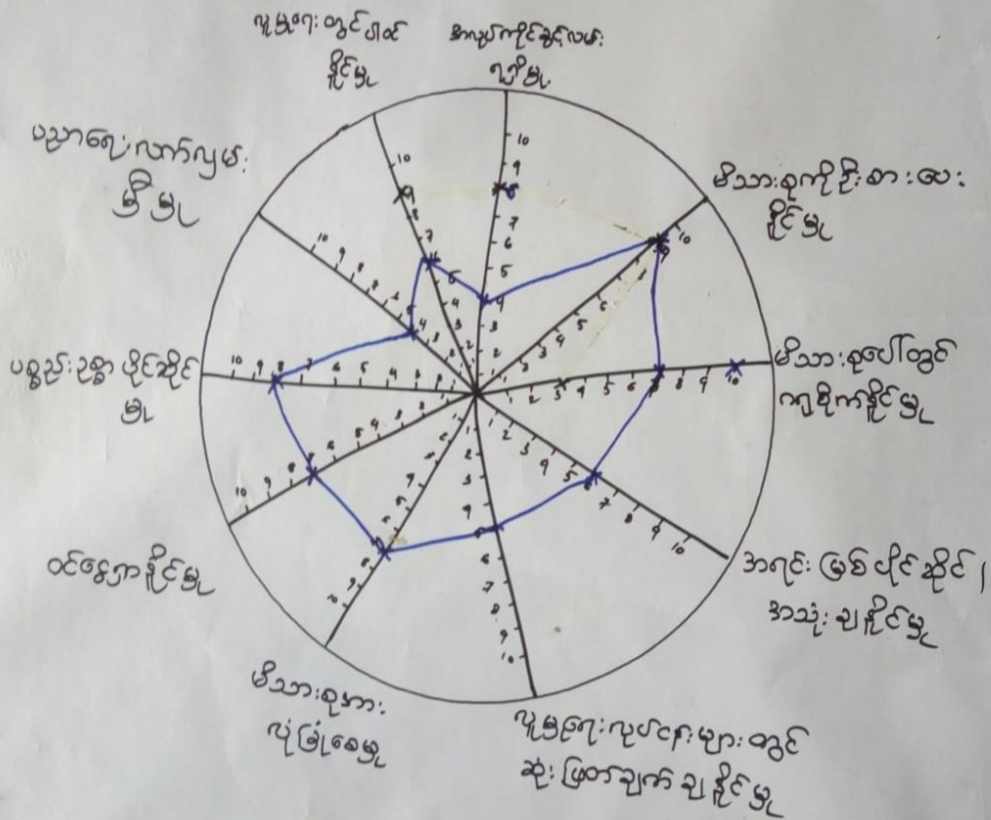 လူမှုရေးတွင်ပါဝင်
နိုင်မှု
အလုပ်ကိုင်ခွင့်လမ်း
ရရှိမှု
မိသားစုကိုဦးစားပေး
နိုင်မှု
မိသားစုပေါ်တွင်
ဂရုစိုက်နိုင်မှု
အရင်းမြစ်ပိုင်ဆိုင်/
အသုံးချနိုင်မှု
လူမှုရေးလုပ်ငန်းများတွင်
ဆုံးဖြတ်ချက်ချနိုင်မှု
မိသားစုအား
လုံခြုံစေမှု
ဝင်ငွေရှာနိုင်မှု
ပစ္စည်းဥစ္စာပိုင်ဆိုင်
မှု
ပညာရေးလက်လှမ်း
မှီမှု